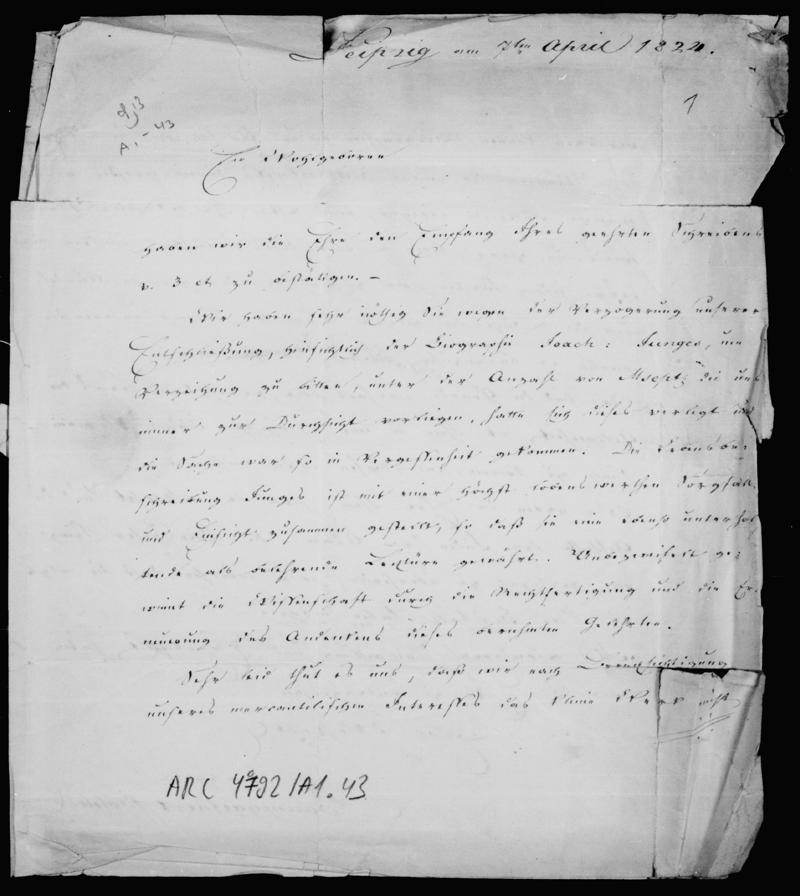 Leipzig am 7ten April 1824.
1
A1-43
Ew Wohlgeboren
haben wir die Ehre den Empfang Ihres geehrten Schreibens
v. 3 ct zu bestätigen. –
Wir haben sehr nöthig Sie wegen der Verzögerung unserer
Entschließung, hinsichtlich der Biographie Joach: Junges, um
Verzeihung zu bitten, unter der Anzahl von Mscpt: die uns
immer zur Durchsicht vorliegen, hatte sich dieses verlegt und
die Sache war so in Vergessenheit gekommen. Die Lebensbe-
schreibung Junges ist mit einer höchst lobenswerthen Sorgfalt
und Einsicht zusammen gestellt, so daß sie eine ebenso unterhal
tende als belehrende Lektüre gewährt. Unbezweifelt ge-
winnt die Wissenschaft durch die Rechtfertigung und die Er-
neuerung des Andenkens dieses berühmten Gelehrten.
Sehr leid thut es uns, daß wir nach Berücksichtigung
unseres mercantilischen Interesses das kleine Werk nicht
ARC 4°792/A1.43